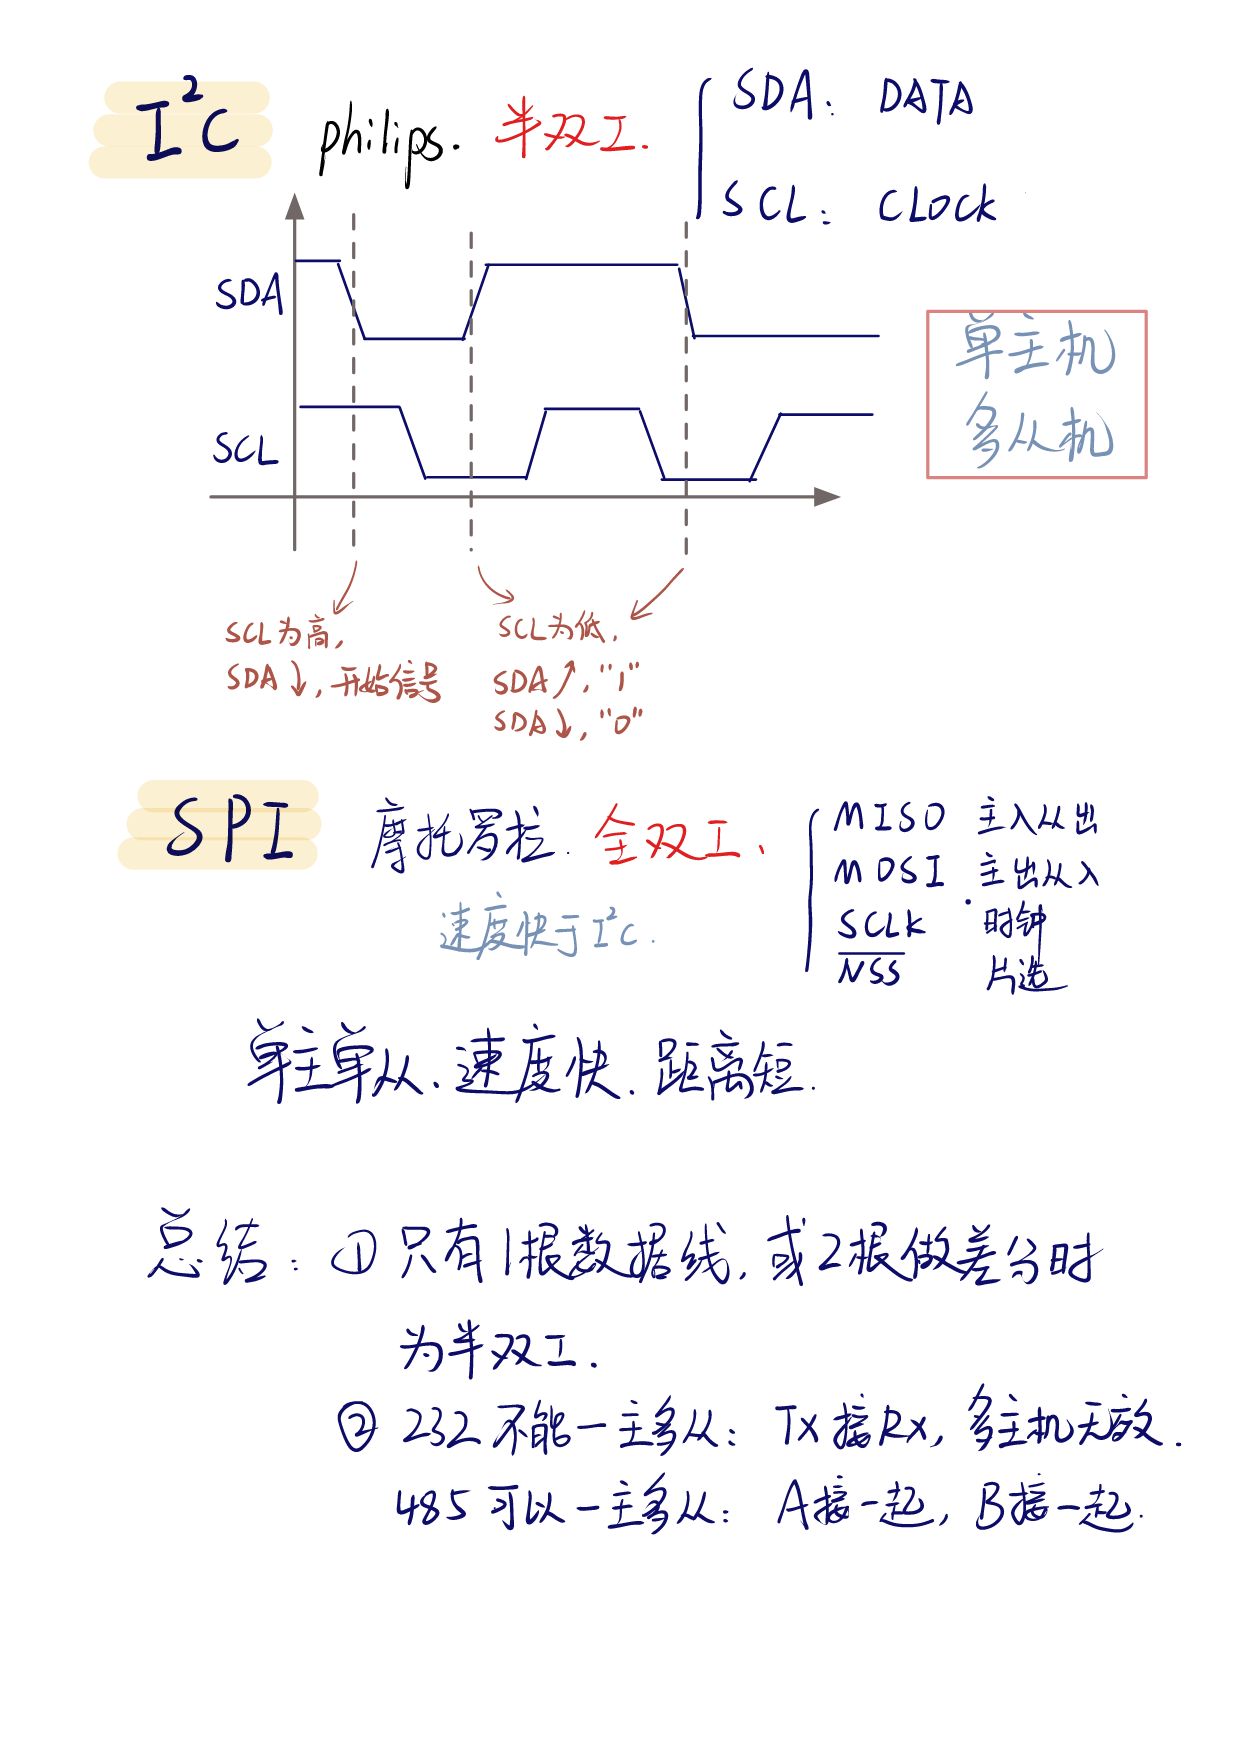 I²C philips. 半双工.
SDA: DATA
SCL: CLOCK
SDA
SCL
单主机
多从机
SCL为高,
SDA↓, 开始信号
SCL为低,
SDA↗, "1"
SDA↓, "0"
SPI 摩托罗拉. 全双工、
速度快于I²C.
MISO 主入从出
MOSI 主出从入
SCLK 时钟
N̅S̅S̅ 片选
单主单从、速度快. 距离短.
总结: ① 只有1根数据线, 或2根做差分时
为半双工.
② 232 不能一主多从: Tx接Rx, 多主机无效.
485 可以一主多从: A接一起, B接一起.